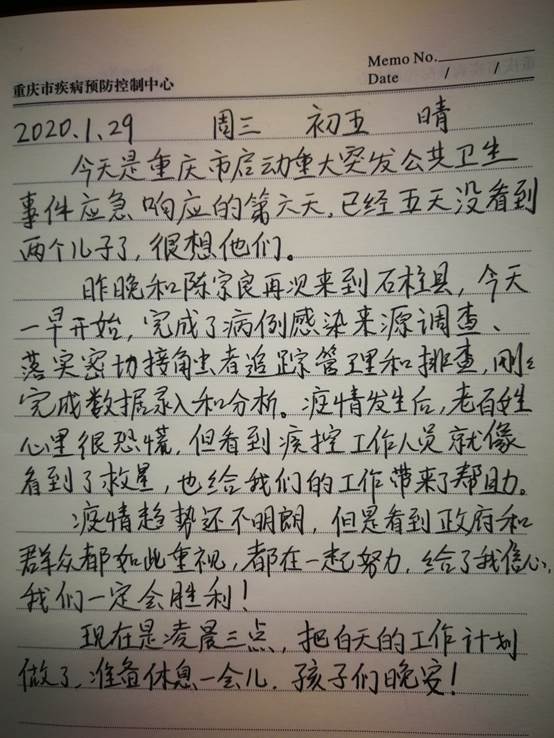 Memo No.
重庆市疾病预防控制中心
Date / /
2020.1.29 周三 初五 晴
今天是重庆市启动重大突发公共卫生
事件应急响应的第六天,已经五天没看到
两个儿子了,很想他们。
昨晚和陈宗良再次来到石柱县,今天
一早开始,完成了病例感染来源调查、
落实密切接触者追踪管理和排查,刚刚
完成数据录入和分析。疫情发生后,老百姓
心里很恐慌,但看到疾控工作人员就像
看到了救星,也给我们的工作带来了帮助。
疫情趋势还不明朗,但是看到政府和
群众都如此重视,都在一起努力,给了我信心,
我们一定会胜利!
现在是凌晨三点,把白天的工作计划
做了,准备休息一会儿,孩子们晚安!